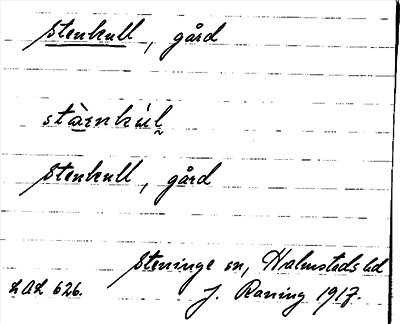 Stenkull, gård
stàrnkúl
Stenkull, gård
Steninge sn, Halmstads hd
LAL 626. J. Raning 1917.